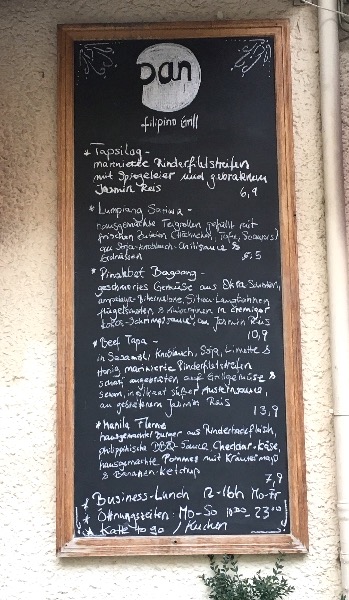 Dan
filipino Grill
* Tapsilog -
marinierte Rinderfiletstreifen
mit Spiegeleier und gebratenem
Jasmin Reis
6,9
* Lumpiang Sariwa -
hausgemachte Teigrollen, gefüllt mit
frischen Zutaten (Hähnchen, Tofu,
an Soja-Knoblauch-Chilisauce &
Erdnüssen
5,5
* Pinakbet Bagoong -
geschmortes Gemüse aus Okra Schoten,
ampalaya-Bittermelone, Sitaw-Langbohnen
flügelbohnen, & in cremiger
Kokos- an Jasmin Reis
10,9
* Beef Tapa -
in Sesamöl, Knoblauch, Soja, Limette &
Honig marinierte Rinderfiletstreifen
scharf angebraten auf Grillgemüse &
süßer Austernsauce,
an gebratenem Jasmin Reis
13,9
* Manila Flame
hausgemachter Burger aus Rinderhackfleisch,
philippinische BBQ-Sauce, Cheddar-Käse,
hausgemachte Pommes mit Kräutermayo
& Bananen-Ketchup
7,9
* Business-Lunch 12-16h Mo-Fr
* Öffnungszeiten: Mo-So 10 30 - 23 00
* Kaffe to go / Kuchen